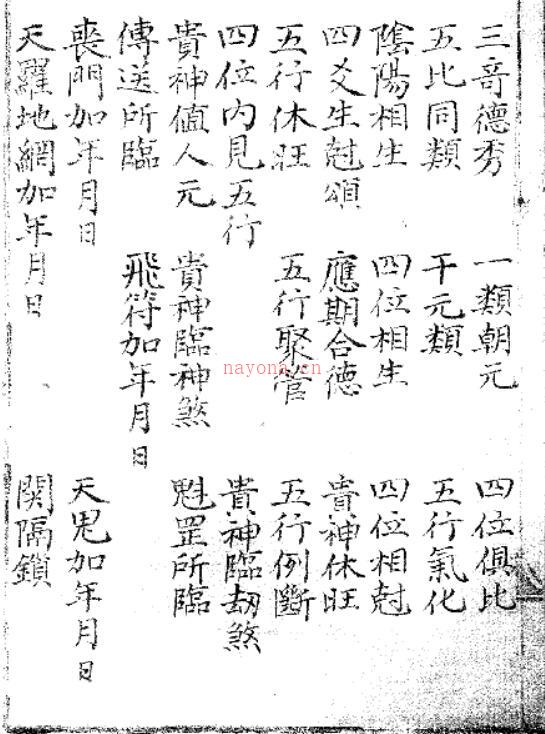 三竒德秀　一類朝元　四位俱比
五比同類　干元類　五行氣化
陰陽相生　四位相生　四位相尅
四爻生尅頌　應期合德　貴神休旺
五行休旺　五行聚管　五行例斷
四位內見五行　貴神臨劫煞
貴神值人元　貴神臨神煞　魁罡所臨
傳送所臨　飛符加年月日
喪門加年月日　天鬼加年月日
天羅地網加年月日　関隔鎖
nayona.cn